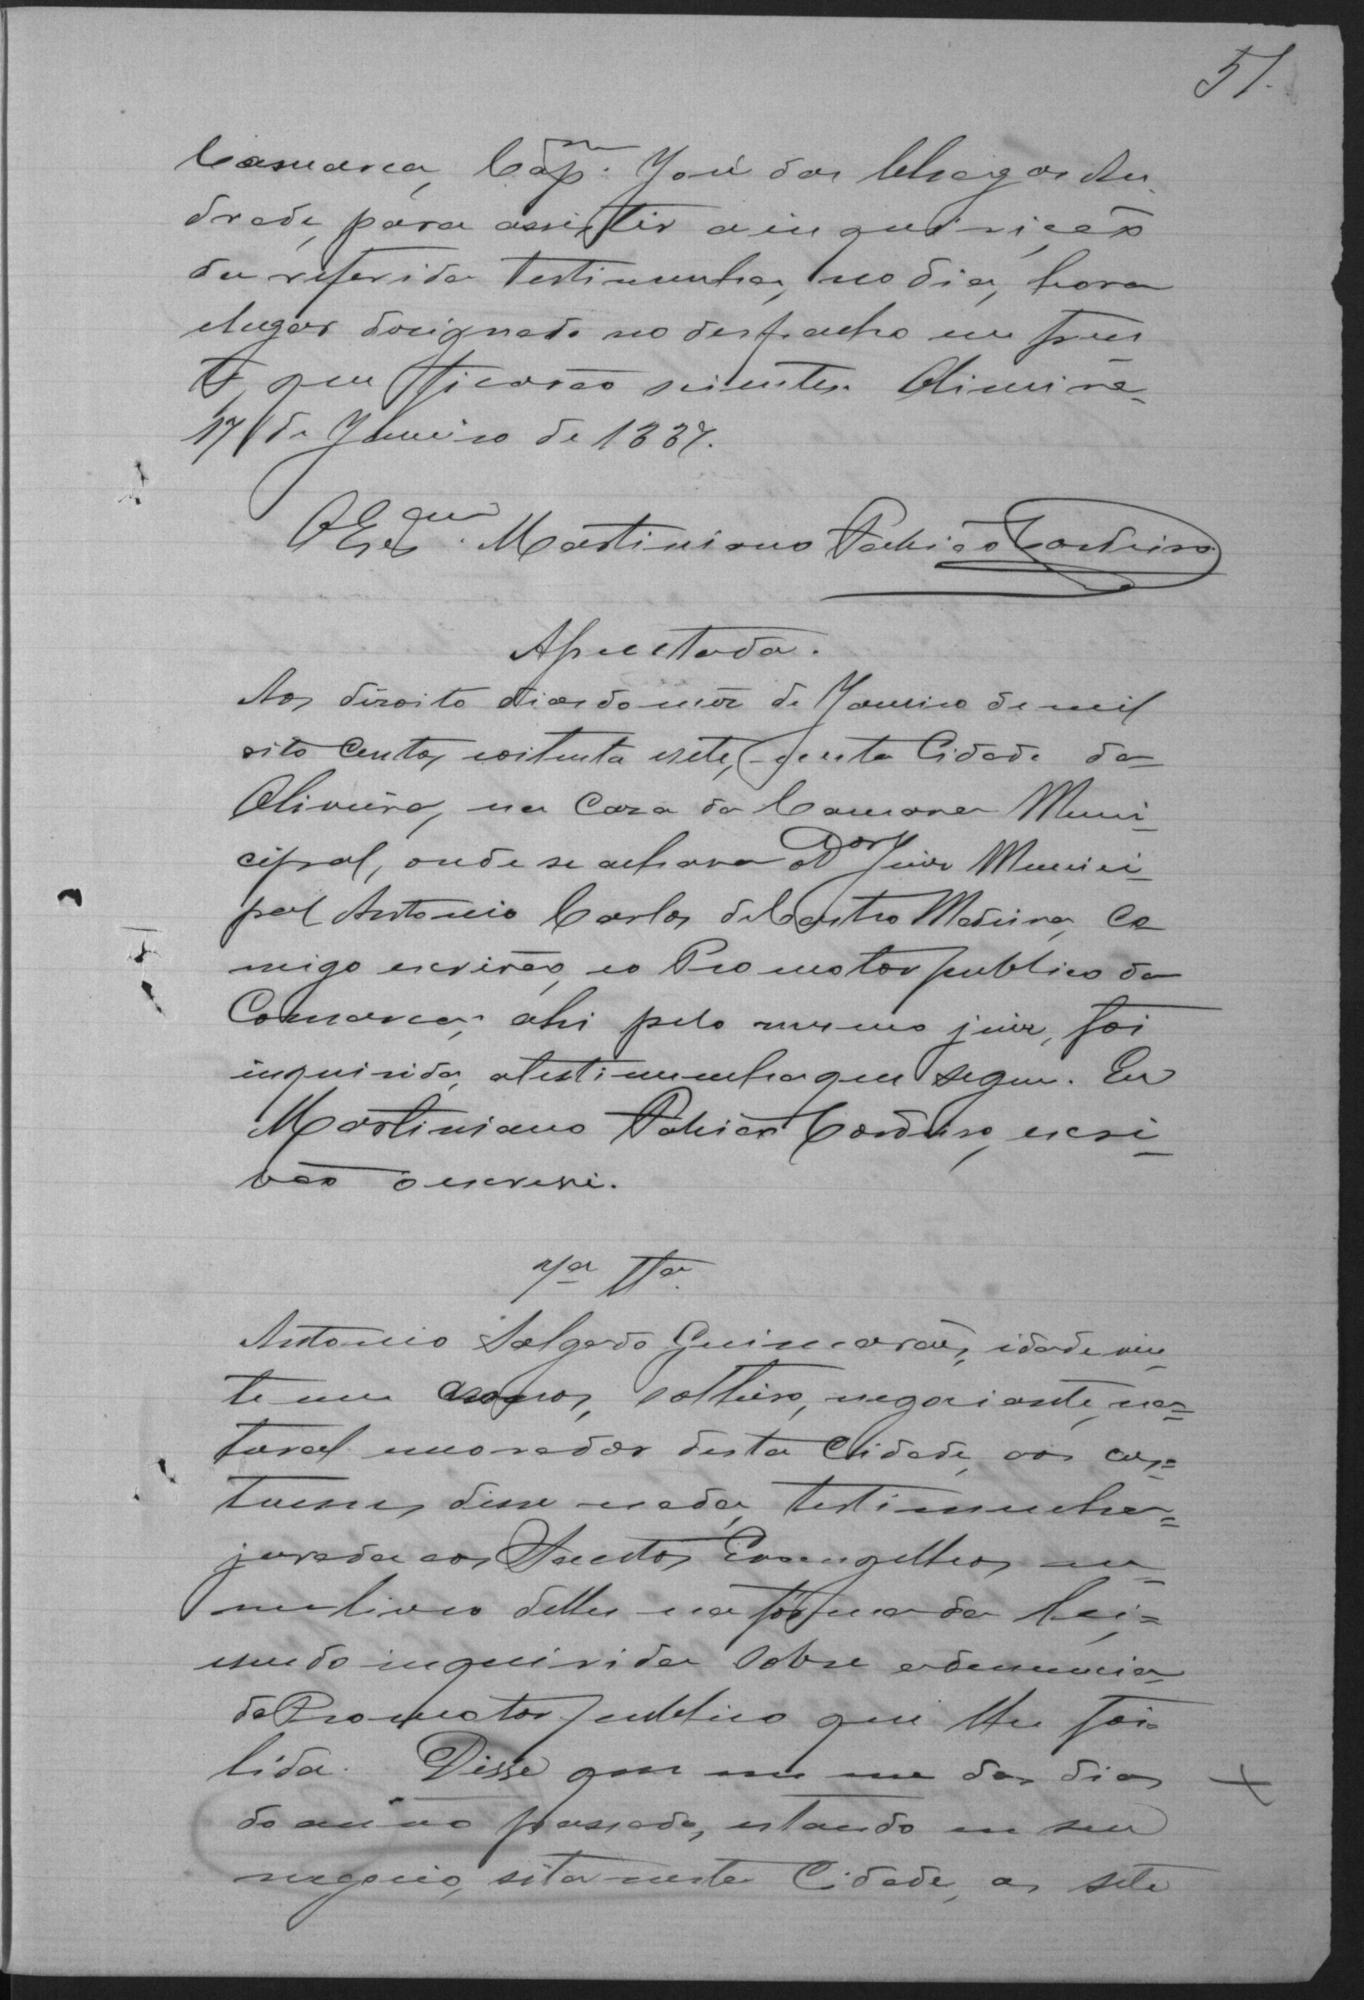 51.
Comarca, Cap.m José das Chagas An
drade, para assistir a inquirição
da referida testimunha, no dia, hora
e lugar designado no despacho em fren
te, que ficarão scientes. Oliveira
17 de Janeiro de 1887.
O Escr.am Martiniano Pacheco Cordeiro
Assentada.
Aos dezoito dias do mez de Janeiro de mil
oito centos, e oitenta e sete, nesta Cidade da
Oliveira, na Caza da Camara Muni
cipal, onde se achava o Dor Juiz Munici
pal Antonio Carlos de Castro Madeira, Co
migo escrivão, e o Promotor publico da
Comarca, ahi pelo mesmo juiz, foi
inquirida, a testimunha que segue. Eu
Martiniano Pacheco Cordeiro, escri
vão o escrevi.
Ta.
Antonio Salgado Guimarães, idade vin
te um annos, solteiro, negociante, na=
tural e morador desta Cidade, aos cus=
tumes, disse nada, testimunha=
jurada aos Santos Evangelhos em
um livro delles na forma da Lei=
sendo inquirida sobre a denuncia
do Promotor publico que lhe foi
lida. Disse que em um dos dias
do anno passado, estando em seu
negocio, sito nesta Cidade, as sete